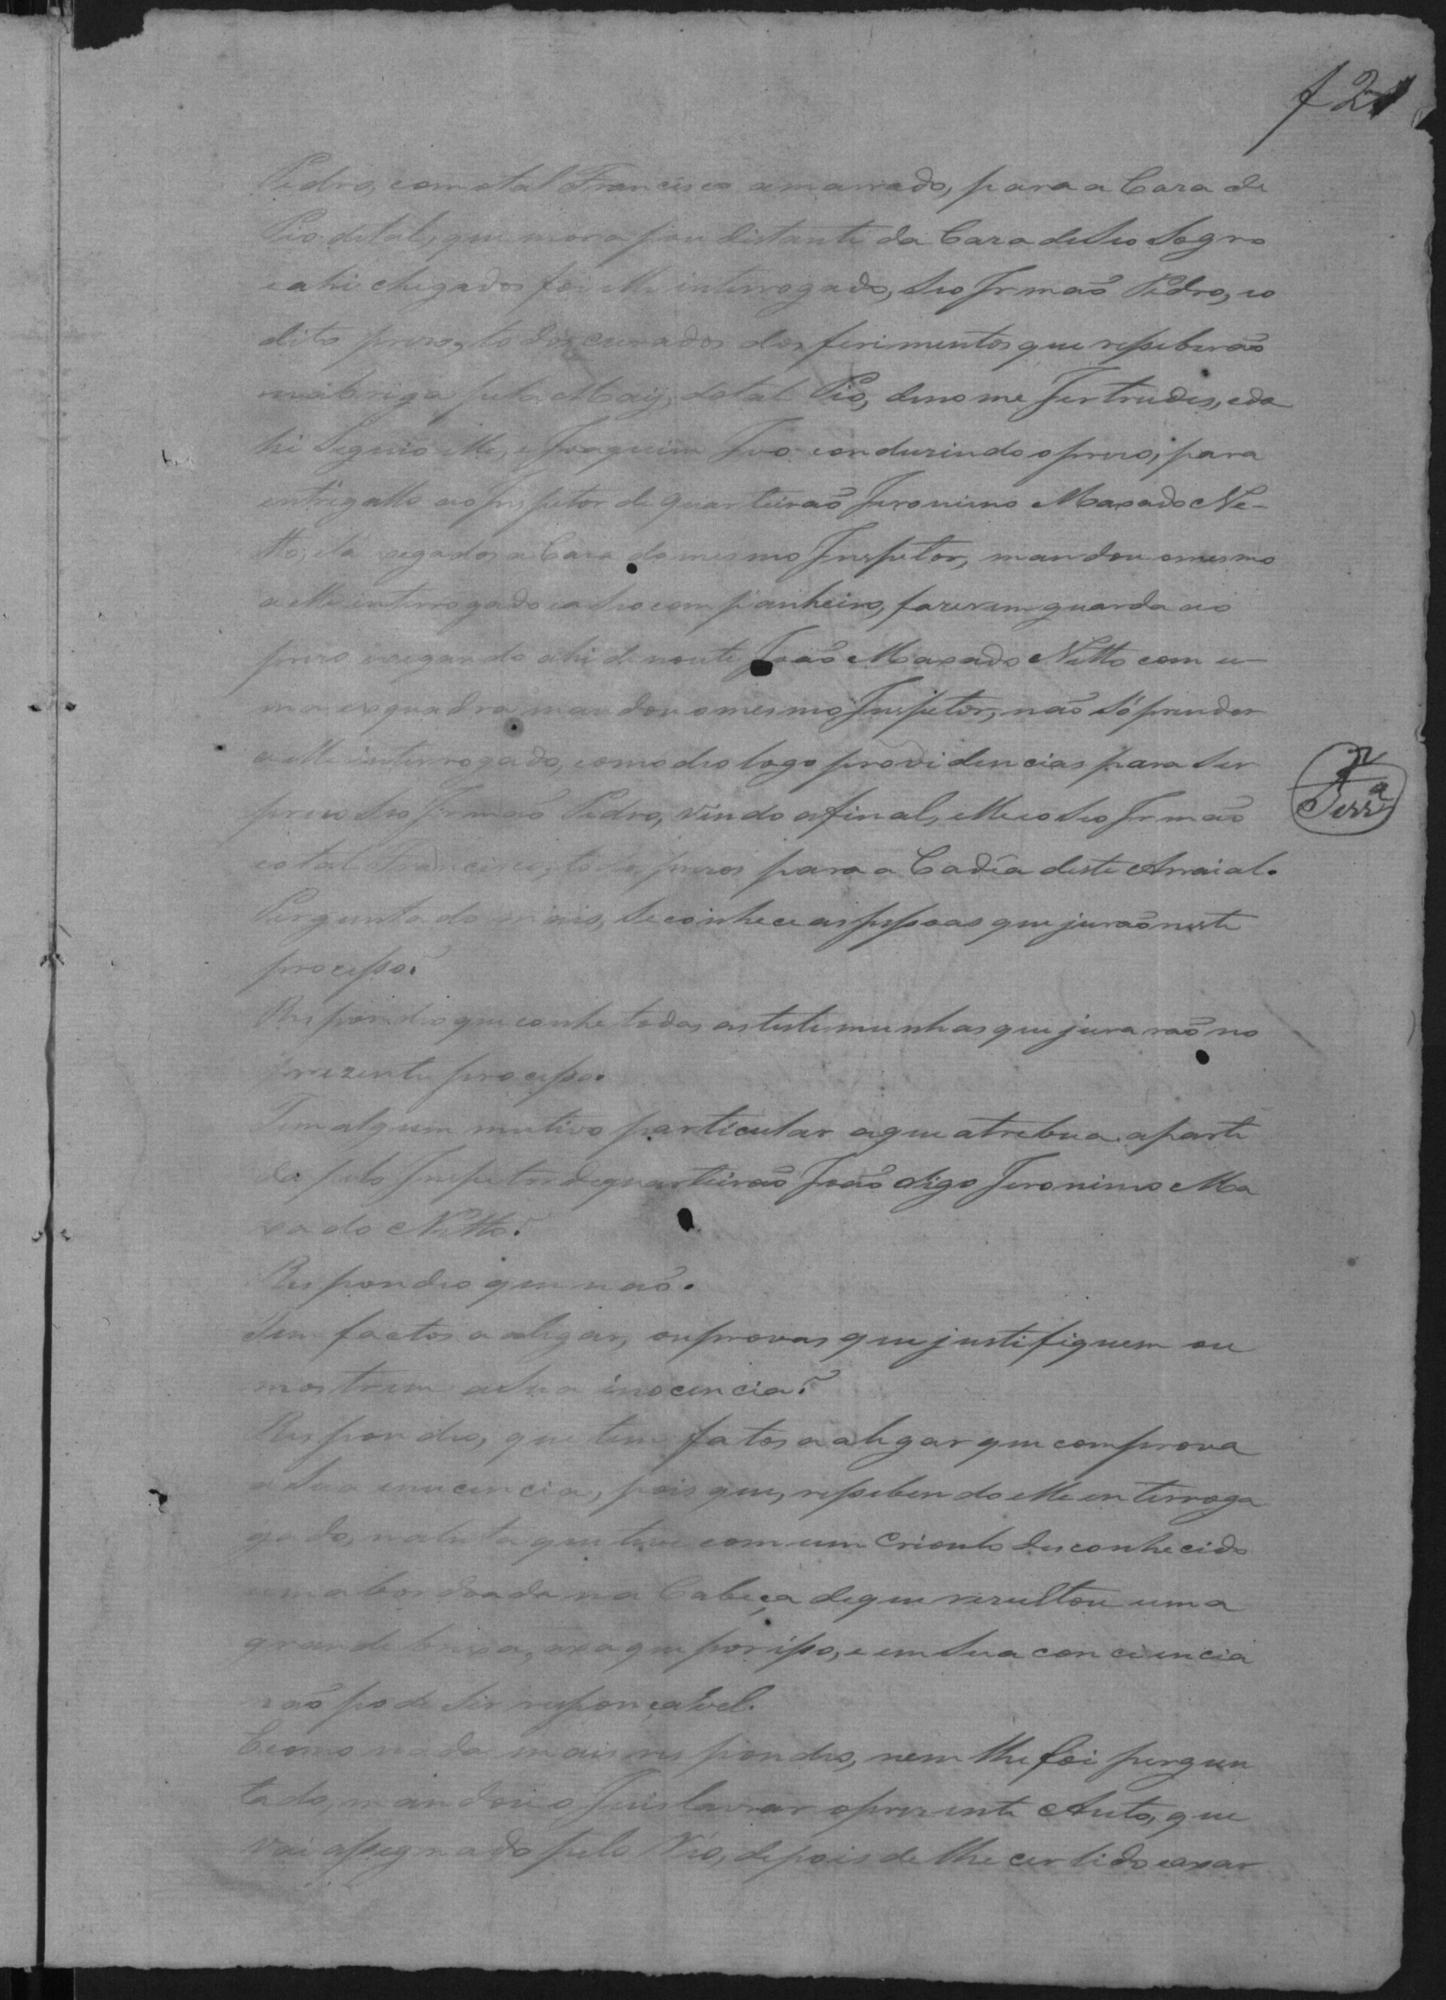 f 21
Pedro, com o tal Francisco amarrado, para a Caza de
Pio de tal, que mora pou distante da Caza de seo Sogro
e ahi chegados foi elle interrogado, seo Irmaõ Pedro, e o
dito prezo, todos curados dos ferimentos que resseberaõ
na briga pela Maij do tal Pio, de nome Jertrudes, e da
hi seguio elle, e Joaquim Ivo conduzindo o prezo, para
entregallo ao Inspetor de quarteiraõ Jeronimo Maxado Ne-
tto, e la xegados a Caza do mesmo Inspetor, mandou o mesmo
a elle interrogado e a seo companheiro, fazerem guarda ao
prezo xegando ahi de noute Joaõ Maxado Netto com u-
ma esquadra mandou o mesmo Inspetor, naõ só prender
a elle interrogado, como deo logo providencias para ser
prezo seo Irmaõ Pedro, vindo afinal, elle e o seo Irmaõ
e o tal Francisco, todos prezos para a Cadêa deste Arraial.
Perguntado mais, se conhece as pessoas que juraõ neste
processo?
Respondeo que conhe todas as testemunhas que juraraõ no
prezente processo.
Tem algum mutivo particular a que atrebua a parte
da pelo Inspetor de quarteiraõ Joaõ digo Jeronimo Ma
xado Netto?
Respondeo que naõ.
Tem factos a alegar, ou provas que justifiquem ou
mostrem a sua inocencia?
Respondeo, que tem fatos a alegar que comprova
a sua inucencia, pois que, ressebendo elle enterroga
gado, na luta que teve com um Crioulo desconhecido
uma bordoada na Cabeça de que rezultou uma
grande brexa, axa que por isso, e em sua conciencia
naõ pode ser responçalvel.
E como nada mais respondeo, nem lhe foi pergun
tado, mandou o Juis lavrar o prezente Auto, que
vai assegnado pelo Réo, depois de lhe cer lido e axar